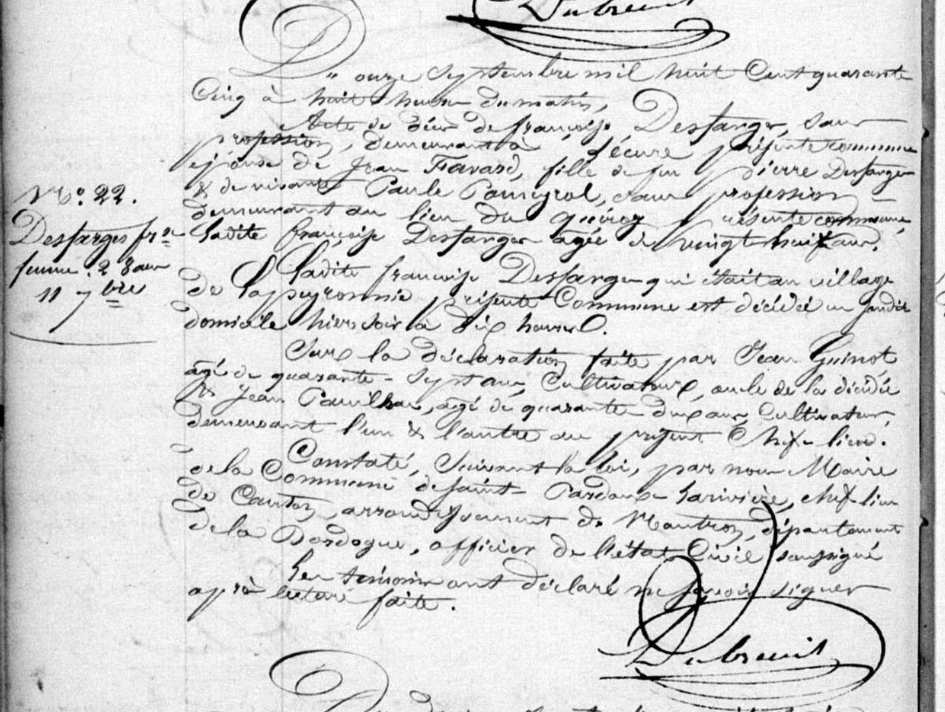 Dubreuil
Du onze Septembre mil huit Cent quarante
Cinq à huit heures du matin,
Acte de décès de françoise Desfarges, sans
profession, demeurant à Lécure présente commune
épouse de Jean Favard, fille de feu pierre Desfarges
& de vivante Paule Pomeyrol, sans profession
demeurant au lieu du présente commune
Ladite françoise Desfarges agée de vingt huit ans.
Ladite françoise Desfarges qui était au village
de Lapeyronnie présente Commune est décédée en sondit
domicile hier soir à dix heures.
Sur la déclaration faite par Jean Guinot,
âgé de quarante-sept ans, Cultivateur, oncle de la décédée
& Jean Pauilhac, agé de quarante-deux ans, Cultivateur,
demeurant l'un & l'autre au présent Chef-lieu.
Constaté, suivant la loi, par nous Maire
de la Commune de Saint-Pardoux-Larivière, chef lieu
de Canton, arrondissement de Nontron, département
de la Dordogne, officier de l'état Civil soussigné
Les témoins ont déclaré ne savoir signer
après lecture faite.
Dubreuil
N.o 22.
Desfarges fse
femme. 28 ans
11 7bre